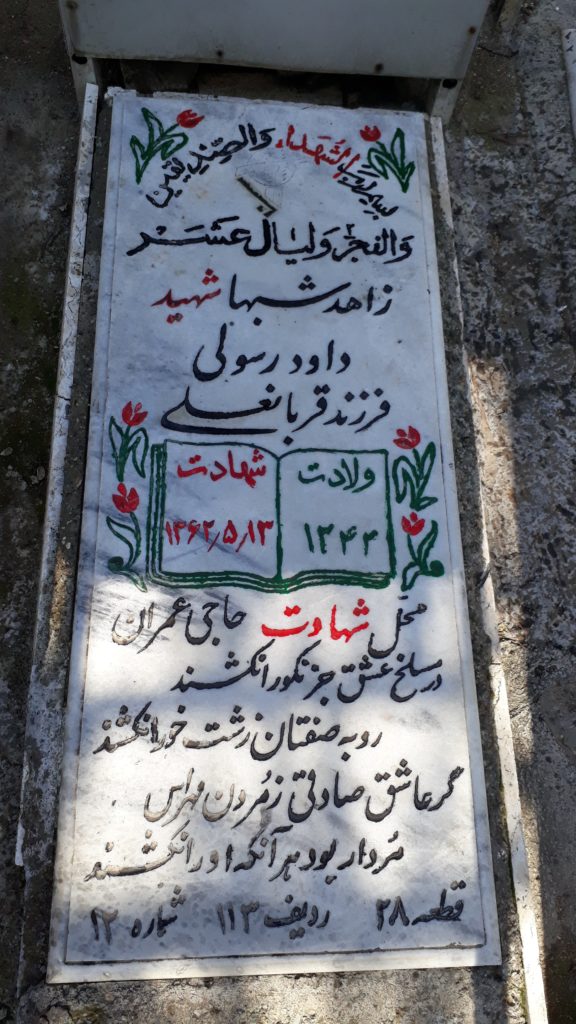 بسم رب الشهداء والصدیقین
والفجر ولیال عشر
زاهد شبها شهید
داود رسولی
فرزند قربانعلی
ولادت
۱۳۴۴
شهادت
۱۳۶۲٫۵٫۱۳
محل شهادت حاجی عمران
در مسلخ عشق جز نکو را نکشند
روبه صفتان زشت خو را نکشند
گر عاشق صادقی ز مردن مهراس
مردار بود هر آنکه او را نکشند
قطعه ۲۸ ردیف ۱۱۳ شماره ۱۲